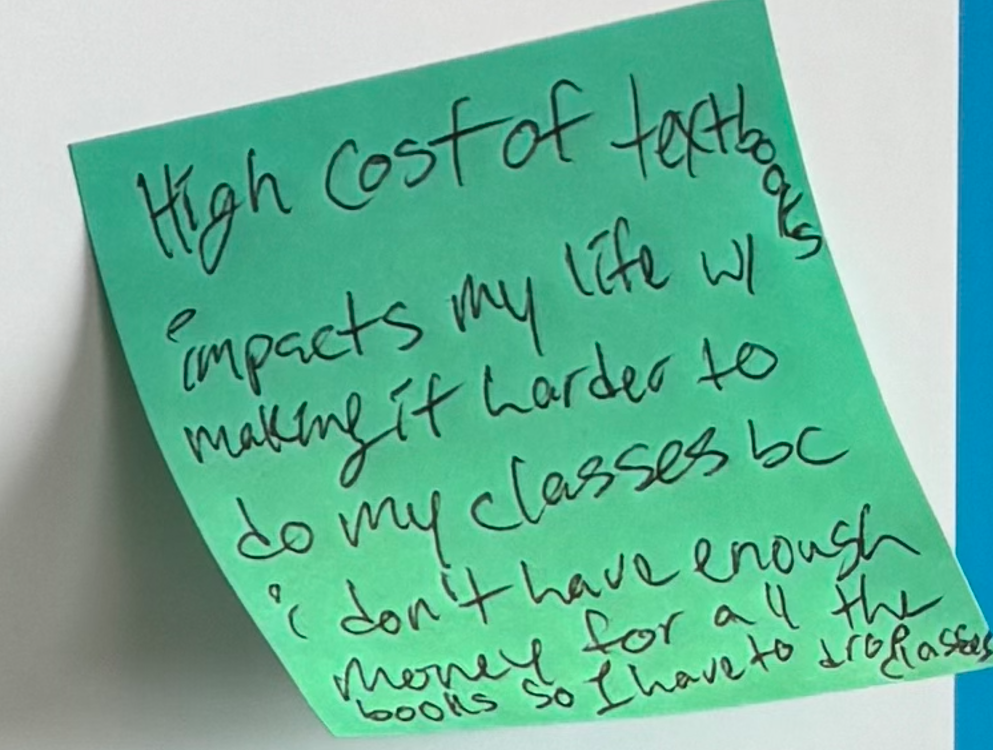 High cost of textbooks
impacts my life w/
making it harder to
do my classes bc
i don't have enough
money for all the
books so I have to drop classes